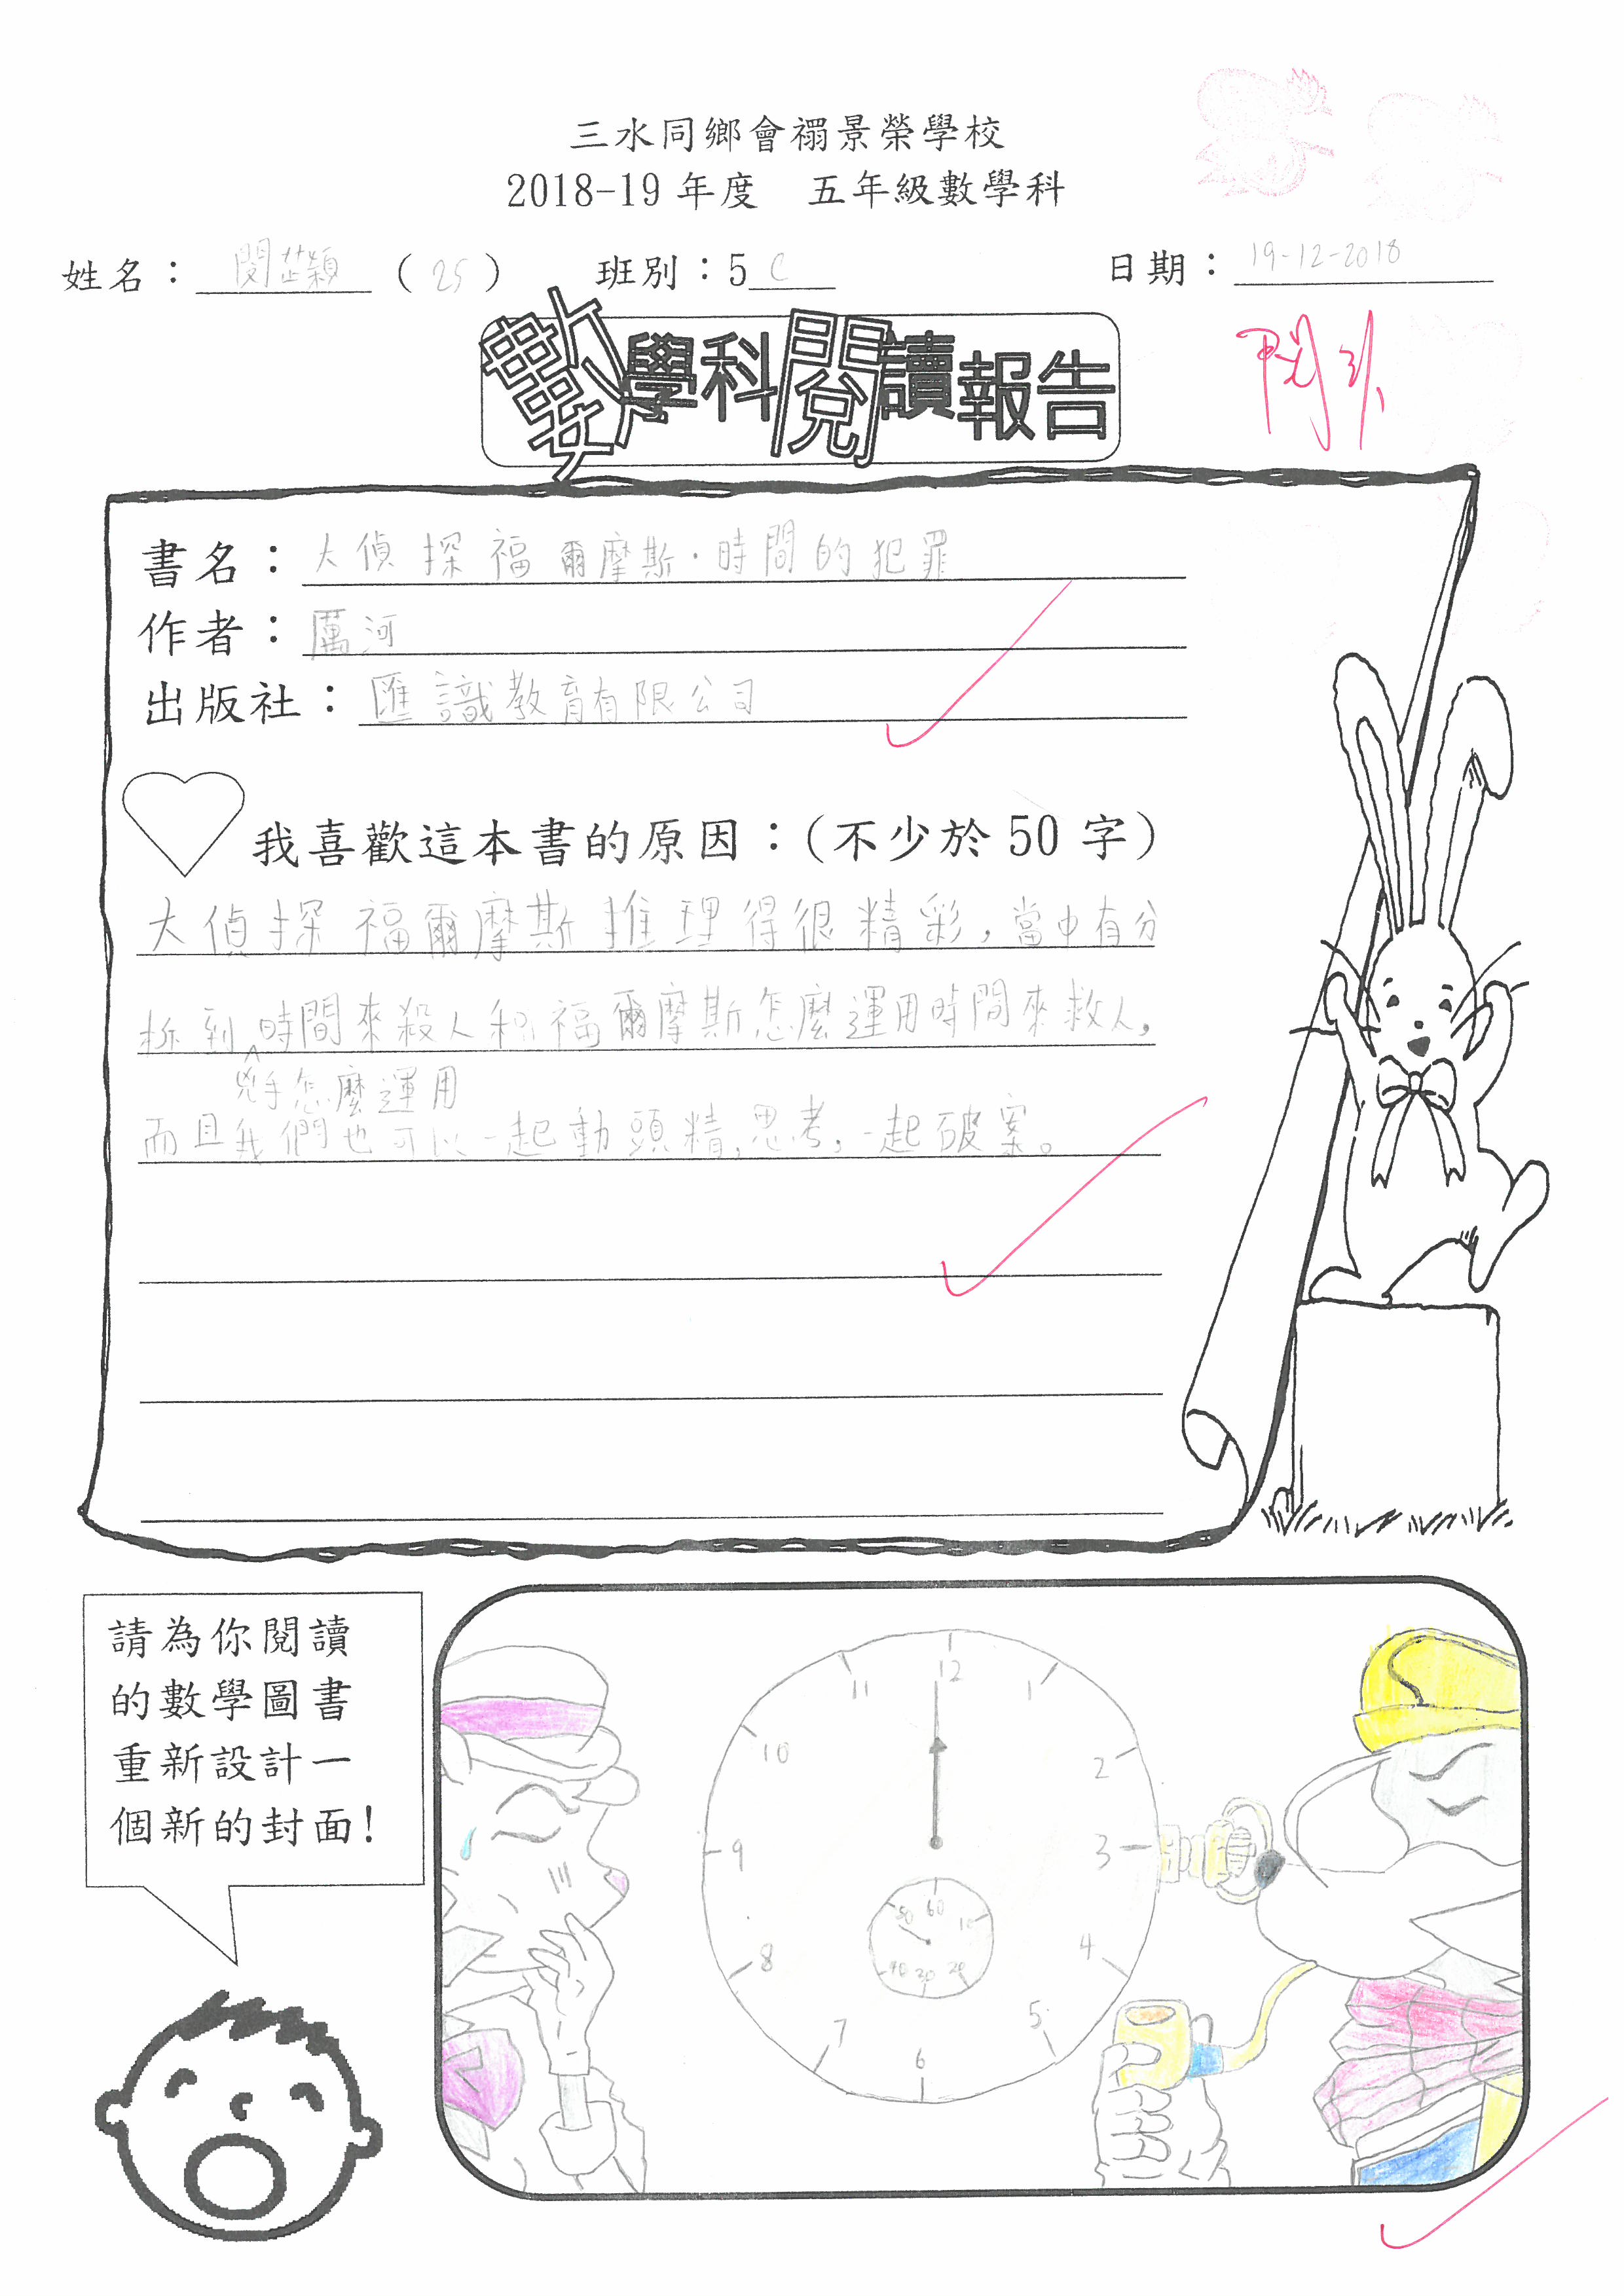 三水同鄉會禤景榮學校
2018-19 年度 五年級數學科
姓名：閔芷穎（25） 班別：5C 日期：19-12-2018
數學科閱讀報告
書名：大偵探福爾摩斯·時間的犯罪
作者：厲河
出版社：匯識教育有限公司
我喜歡這本書的原因：(不少於 50 字)
大偵探福爾摩斯推理得很精彩，當中有分
柝到時間來殺人和福爾摩斯怎麼運用時間來救人，
兇手怎麼運用
而且我們也可以一起動頭精，思考，一起破案。
請為你閱讀
的數學圖書
重新設計一
個新的封面!
12
11 1
10 2
9 3
8 4
7 5
6
60
50 10
40 30 20